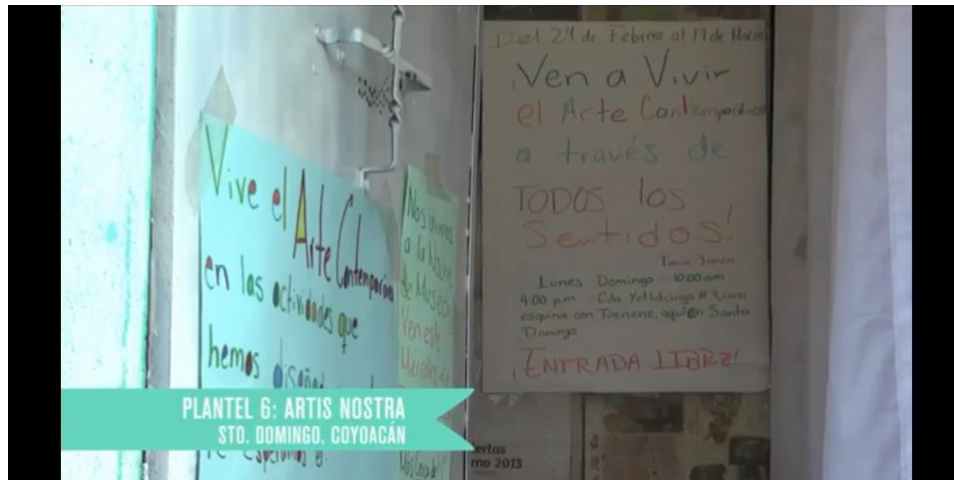 Vive el
Arte Contemporáneo
en las actividades que
hemos diseñado
Nos unimos
a la Noche
de Museos
Ven este
Miércoles
Del 24 de Febrero al 17 de Marzo
¡Ven a Vivir
el Arte Contemporáneo
a través de
TODOS los
Sentidos!
Lunes Domingo 10:00 am
4:00 p.m. Cda.
esquina con Tosnene, aquí en Santo
Domingo
¡ENTRADA LIBRE!
PLANTEL 6: ARTIS NOSTRA
STO. DOMINGO, COYOACÁN
2013